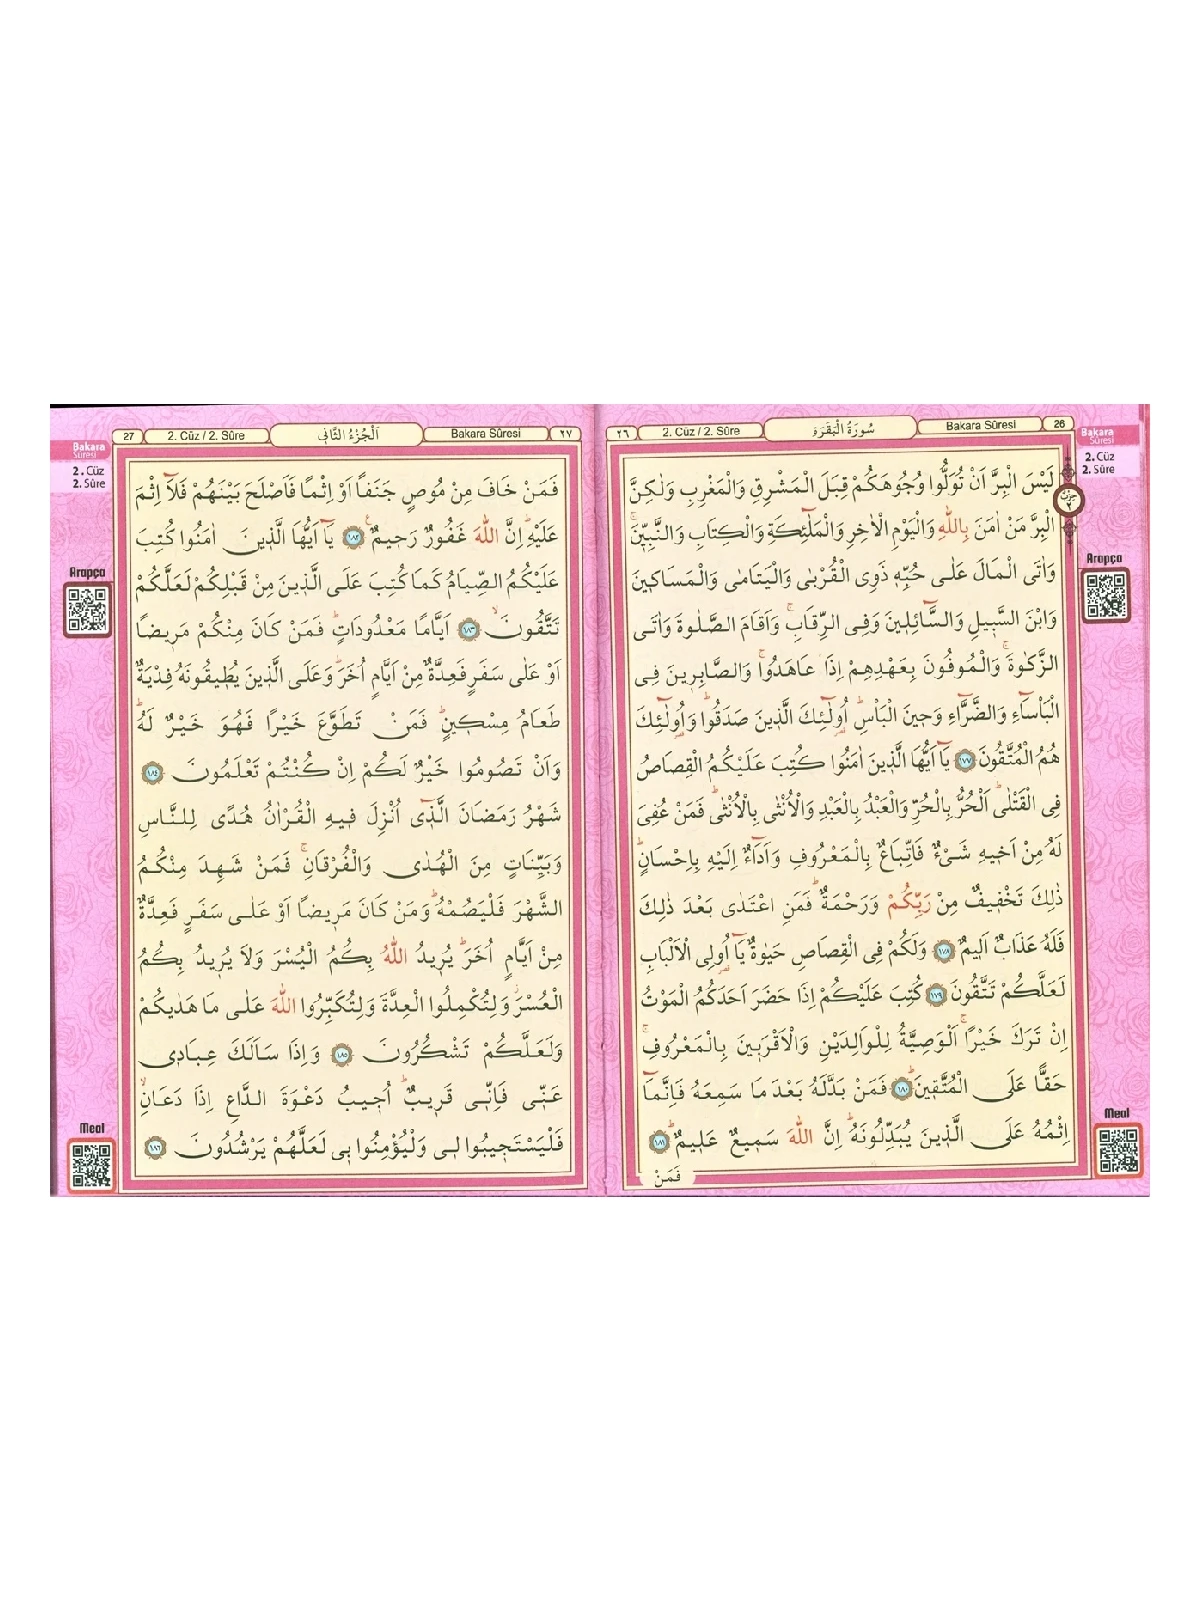 26
Bakara Sûresi
سُورَةُ الْبَقَرَةِ
2. Cüz / 2. Sûre
٢٦
Bakara
Sûresi
2. Cüz
2. Sûre
Arapça
Meal
لَيْسَ الْبِرَّ اَنْ تُوَلُّوا وُجُوهَكُمْ قِبَلَ الْمَشْرِقِ وَالْمَغْرِبِ وَلٰكِنَّ
الْبِرَّ مَنْ اٰمَنَ بِاللّٰهِ وَالْيَوْمِ الْاٰخِرِ وَالْمَلٰٓئِكَةِ وَالْكِتَابِ وَالنَّبِيّ۪نَۚ
وَاٰتَى الْمَالَ عَلٰى حُبِّه۪ ذَوِي الْقُرْبٰى وَالْيَتَامٰى وَالْمَسَاك۪ينَ
وَابْنَ السَّب۪يلِ وَالسَّٓائِل۪ينَ وَفِي الرِّقَابِۚ وَاَقَامَ الصَّلٰوةَ وَاٰتَى
الزَّكٰوةَۚ وَالْمُوفُونَ بِعَهْدِهِمْ اِذَا عَاهَدُواۚ وَالصَّابِر۪ينَ فِي
الْبَأْسَٓاءِ وَالضَّرَّٓاءِ وَح۪ينَ الْبَأْسِۜ اُو۬لٰٓئِكَ الَّذ۪ينَ صَدَقُواۜ وَاُو۬لٰٓئِكَ
هُمُ الْمُتَّقُونَ ﴿١٧٧﴾ يَٓا اَيُّهَا الَّذ۪ينَ اٰمَنُوا كُتِبَ عَلَيْكُمُ الْقِصَاصُ
فِي الْقَتْلٰىۜ اَلْحُرُّ بِالْحُرِّ وَالْعَبْدُ بِالْعَبْدِ وَالْاُنْثٰى بِالْاُنْثٰىۜ فَمَنْ عُفِيَ
لَهُ مِنْ اَخ۪يهِ شَيْءٌ فَاتِّبَاعٌ بِالْمَعْرُوفِ وَاَدَٓاءٌ اِلَيْهِ بِاِحْسَانٍۜ
ذٰلِكَ تَخْف۪يفٌ مِنْ رَبِّكُمْ وَرَحْمَةٌۜ فَمَنِ اعْتَدٰى بَعْدَ ذٰلِكَ
فَلَهُ عَذَابٌ اَل۪يمٌ ﴿١٧٨﴾ وَلَكُمْ فِي الْقِصَاصِ حَيٰوةٌ يَٓا اُو۬لِي الْاَلْبَابِ
لَعَلَّكُمْ تَتَّقُونَ ﴿١٧٩﴾ كُتِبَ عَلَيْكُمْ اِذَا حَضَرَ اَحَدَكُمُ الْمَوْتُ
اِنْ تَرَكَ خَيْرًاۚ اَلْوَصِيَّةُ لِلْوَالِدَيْنِ وَالْاَقْرَب۪ينَ بِالْمَعْرُوفِۚ
حَقًّا عَلَى الْمُتَّق۪ينَ ﴿١٨٠﴾ فَمَنْ بَدَّلَهُ بَعْدَ مَا سَمِعَهُ فَاِنَّمَٓا
اِثْمُهُ عَلَى الَّذ۪ينَ يُبَدِّلُونَهُۜ اِنَّ اللّٰهَ سَم۪يعٌ عَل۪يمٌۜ ﴿١٨١﴾
فَمَنْ
٢٧
Bakara Sûresi
اَلْجُزْءُ الثَّانِي
2. Cüz / 2. Sûre
27
Bakara
Sûresi
2. Cüz
2. Sûre
Arapça
Meal
فَمَنْ خَافَ مِنْ مُوصٍ جَنَفًا اَوْ اِثْمًا فَاَصْلَحَ بَيْنَهُمْ فَلَٓا اِثْمَ
عَلَيْهِۜ اِنَّ اللّٰهَ غَفُورٌ رَح۪يمٌ۟ ﴿١٨٢﴾ يَٓا اَيُّهَا الَّذ۪ينَ اٰمَنُوا كُتِبَ
عَلَيْكُمُ الصِّيَامُ كَمَا كُتِبَ عَلَى الَّذ۪ينَ مِنْ قَبْلِكُمْ لَعَلَّكُمْ
تَتَّقُونَۙ ﴿١٨٣﴾ اَيَّامًا مَعْدُودَاتٍۜ فَمَنْ كَانَ مِنْكُمْ مَر۪يضًا
اَوْ عَلٰى سَفَرٍ فَعِدَّةٌ مِنْ اَيَّامٍ اُخَرَۜ وَعَلَى الَّذ۪ينَ يُط۪يقُونَهُ فِدْيَةٌ
طَعَامُ مِسْك۪ينٍۜ فَمَنْ تَطَوَّعَ خَيْرًا فَهُوَ خَيْرٌ لَهُۜ
وَاَنْ تَصُومُوا خَيْرٌ لَكُمْ اِنْ كُنْتُمْ تَعْلَمُونَ ﴿١٨٤﴾
شَهْرُ رَمَضَانَ الَّذ۪ٓي اُنْزِلَ ف۪يهِ الْقُرْاٰنُ هُدًى لِلنَّاسِ
وَبَيِّنَاتٍ مِنَ الْهُدٰى وَالْفُرْقَانِۚ فَمَنْ شَهِدَ مِنْكُمُ
الشَّهْرَ فَلْيَصُمْهُۜ وَمَنْ كَانَ مَر۪يضًا اَوْ عَلٰى سَفَرٍ فَعِدَّةٌ
مِنْ اَيَّامٍ اُخَرَۜ يُر۪يدُ اللّٰهُ بِكُمُ الْيُسْرَ وَلَا يُر۪يدُ بِكُمُ
الْعُسْرَۘ وَلِتُكْمِلُوا الْعِدَّةَ وَلِتُكَبِّرُوا اللّٰهَ عَلٰى مَا هَدٰيكُمْ
وَلَعَلَّكُمْ تَشْكُرُونَ ﴿١٨٥﴾ وَاِذَا سَاَلَكَ عِبَاد۪ي
عَنّ۪ي فَاِنّ۪ي قَر۪يبٌۜ اُج۪يبُ دَعْوَةَ الدَّاعِ اِذَا دَعَانِۙ
فَلْيَسْتَج۪يبُوا ل۪ي وَلْيُؤْمِنُوا ب۪ي لَعَلَّهُمْ يَرْشُدُونَ ﴿١٨٦﴾